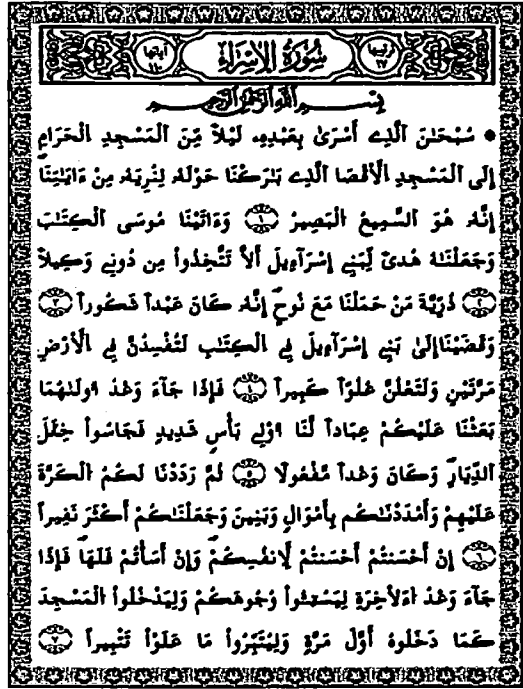 ترتيبها ١٧
سُورَةُ الإِسْرَاءِ
آياتها ١١٠
بِسْمِ اللَّهِ الرَّحْمَٰنِ الرَّحِيمِ
سُبْحَٰنَ اَ۬لذِےٓ أَسْرَىٰ بِعَبْدِهِۦ لَيْلاٗ مِّنَ اَ۬لْمَسْجِدِ اِ۬لْحَرَامِ
إِلَى اَ۬لْمَسْجِدِ اِ۬لْأَقْصَا اَ۬لذِے بَٰرَكْنَا حَوْلَهُۥ لِنُرِيَهُۥ مِنْ ءَايَٰتِنَآ
إِنَّهُۥ هُوَ اَ۬لسَّمِيعُ اُ۬لْبَصِيرُ ١ وَءَاتَيْنَا مُوسَى اَ۬لْكِتَٰبَ
وَجَعَلْنَٰهُ هُدىٗ لِّبَنِےٓ إِسْرَآءِيلَ أَلَّا تَتَّخِذُواْ مِن دُونِے وَكِيلاٗ
٢ ذُرِّيَّةَ مَنْ حَمَلْنَا مَعَ نُوحٍ إِنَّهُۥ كَانَ عَبْداٗ شَكُوراٗ ٣
وَقَضَيْنَآ إِلَىٰ بَنِےٓ إِسْرَآءِيلَ فِے اِ۬لْكِتَٰبِ لَتُفْسِدُنَّ فِے اِ۬لْأَرْضِ
مَرَّتَيْنِ وَلَتَعْلُنَّ عُلُوّاٗ كَبِيراٗ ٤ فَإِذَا جَآءَ وَعْدُ أُولَىٰهُمَا
بَعَثْنَا عَلَيْكُمْ عِبَاداٗ لَّنَآ أُوْلِے بَأْسٍ شَدِيدٍ فَجَاسُواْ خِلَٰلَ
اَ۬لدِّيَارِ وَكَانَ وَعْداٗ مَّفْعُولاٗ ٥ ثُمَّ رَدَدْنَا لَكُمُ اُ۬لْكَرَّةَ
عَلَيْهِمْ وَأَمْدَدْنَٰكُم بِأَمْوَٰلٍ وَبَنِينَ وَجَعَلْنَٰكُمْ أَكْثَرَ نَفِيراً
٦ إِنْ أَحْسَنتُمْ أَحْسَنتُمْ لِأَنفُسِكُمْ وَإِنْ أَسَأْتُمْ فَلَهَا فَإِذَا
جَآءَ وَعْدُ اُ۬لْأَخِرَةِ لِيَسُـُٔواْ وُجُوهَكُمْ وَلِيَدْخُلُواْ اُ۬لْمَسْجِدَ
كَمَا دَخَلُوهُ أَوَّلَ مَرَّةٖ وَلِيُتَبِّرُواْ مَا عَلَوْاْ تَتْبِيراً ٧